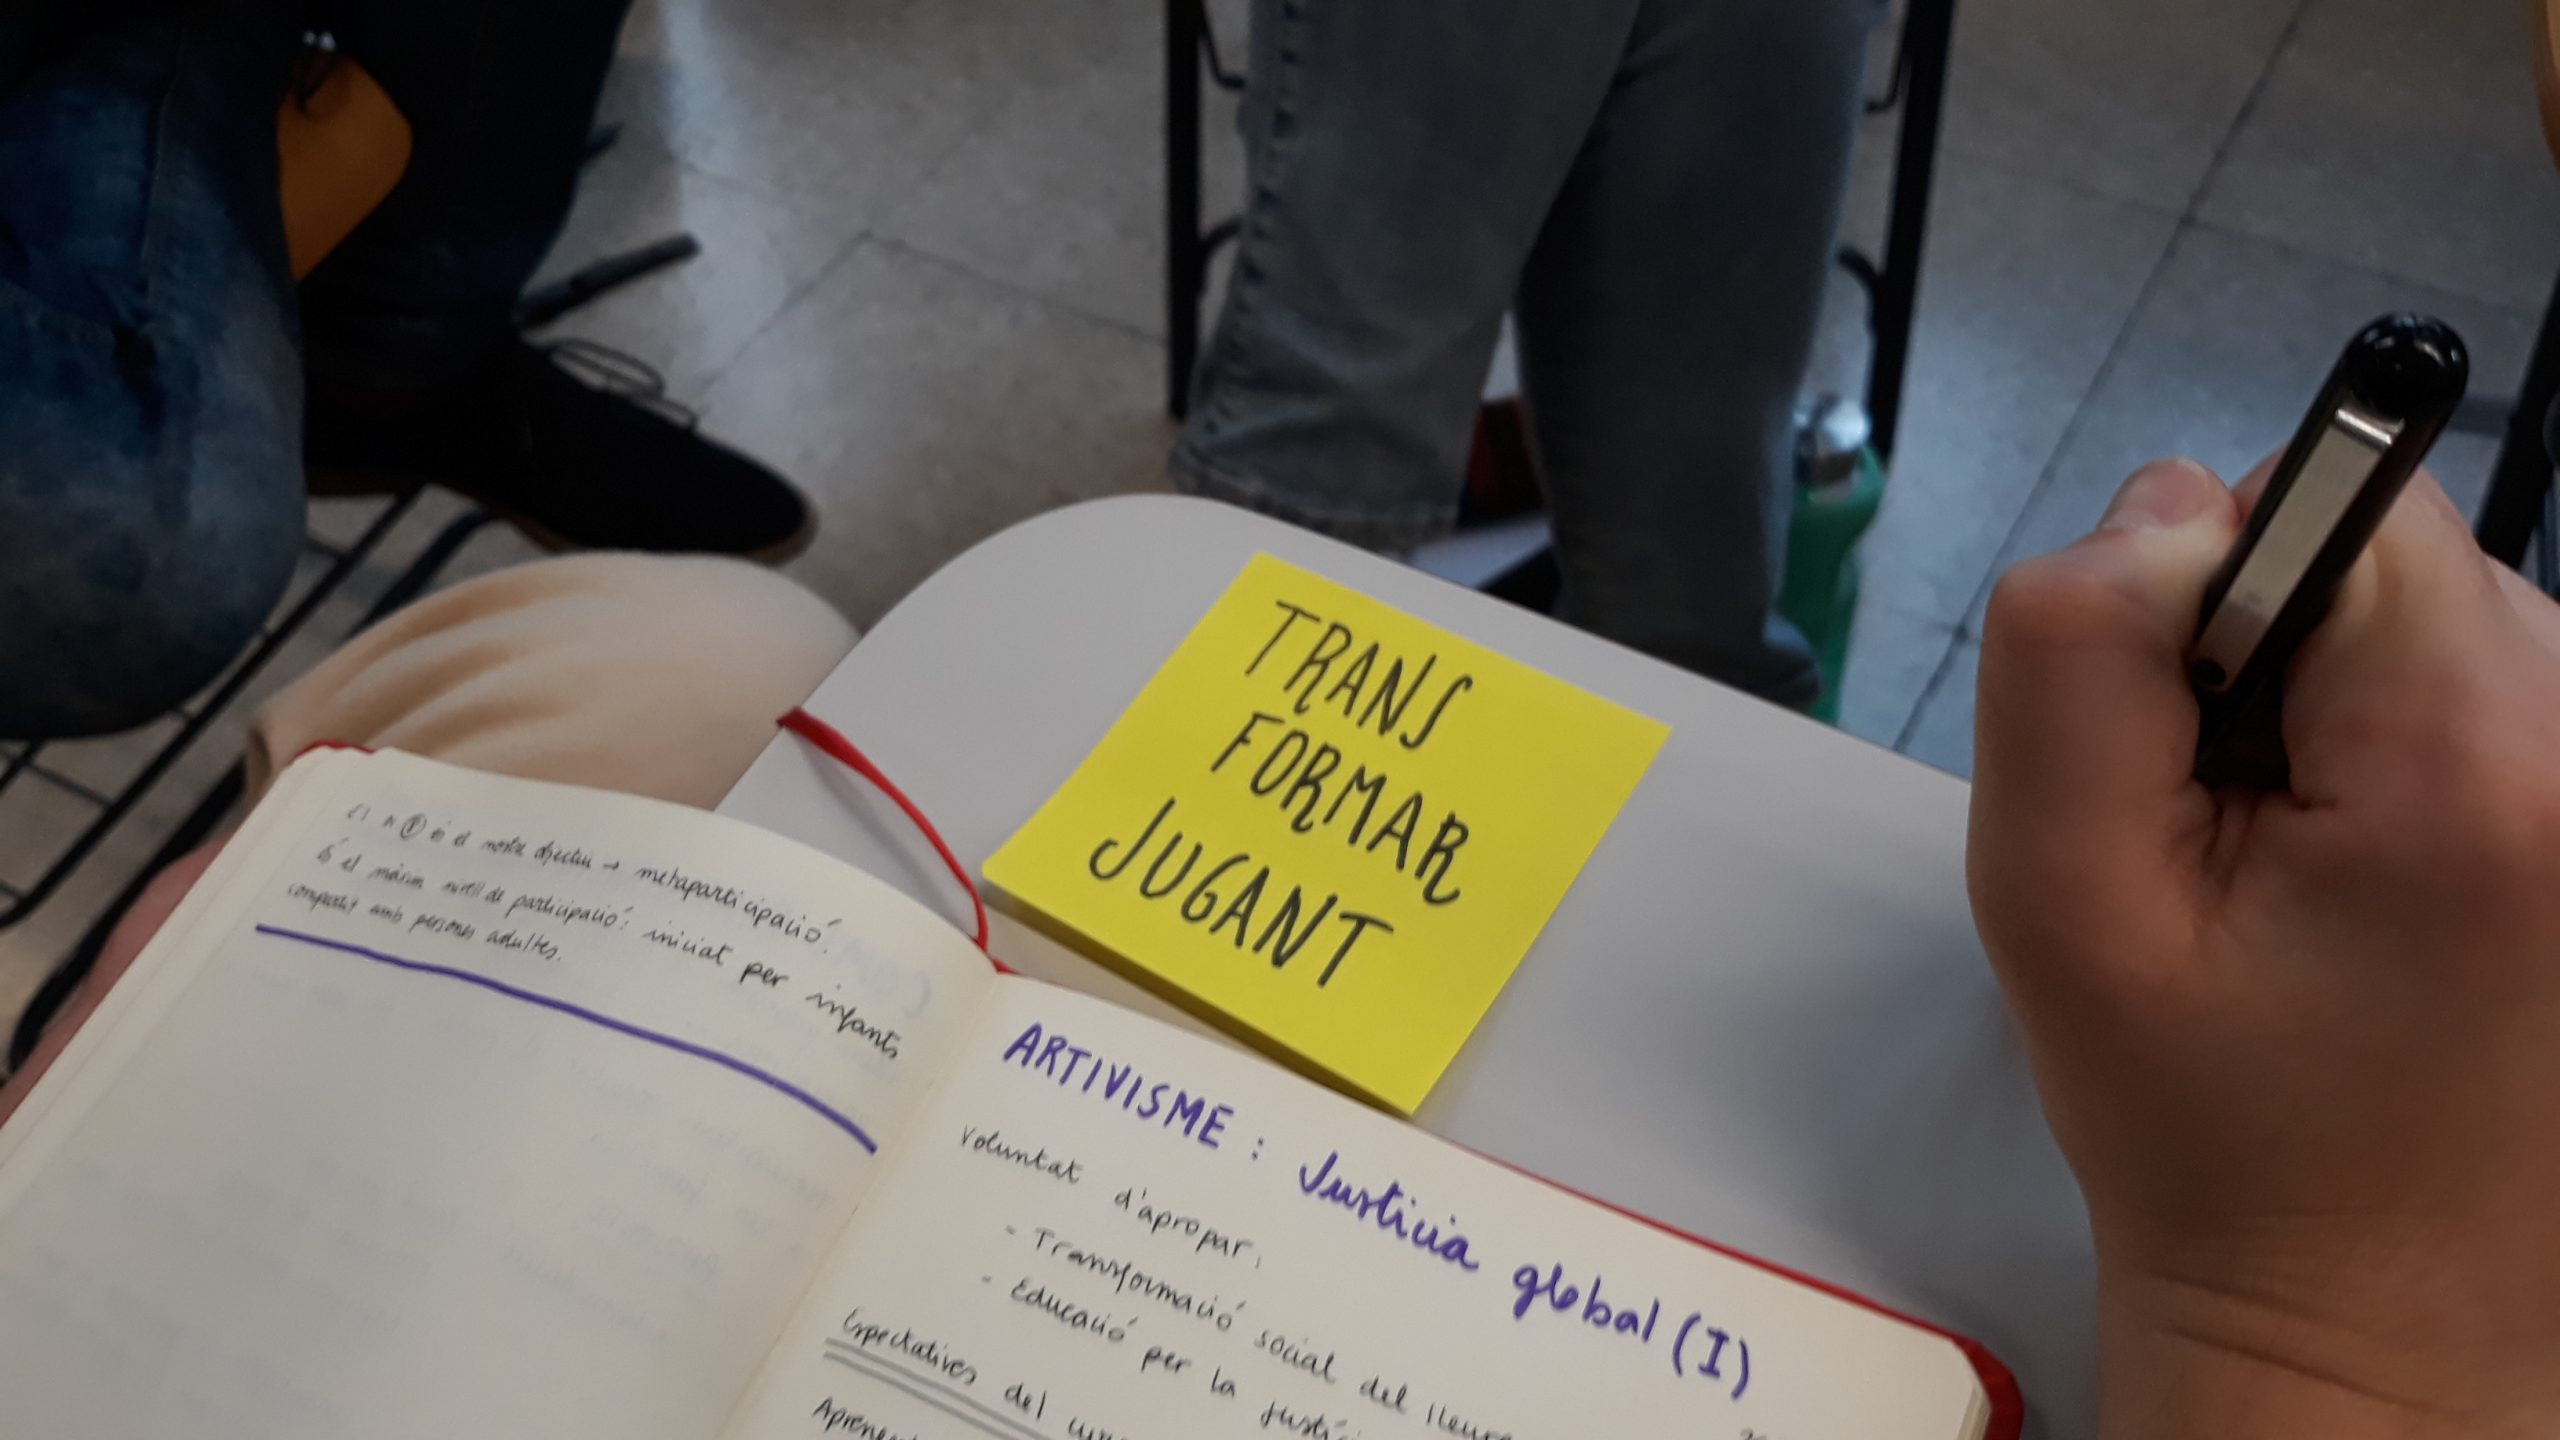 TRANS
FORMAR
JUGANT
és el nostre objectiu → metaparticipació.
És el màxim nivell de participació: iniciat per infants
compartit amb persones adultes.
ARTIVISME: Justícia global (I)
Voluntat d'apropar,
- Transformació social del lleure
- Educació per la justíci
Expectatives del